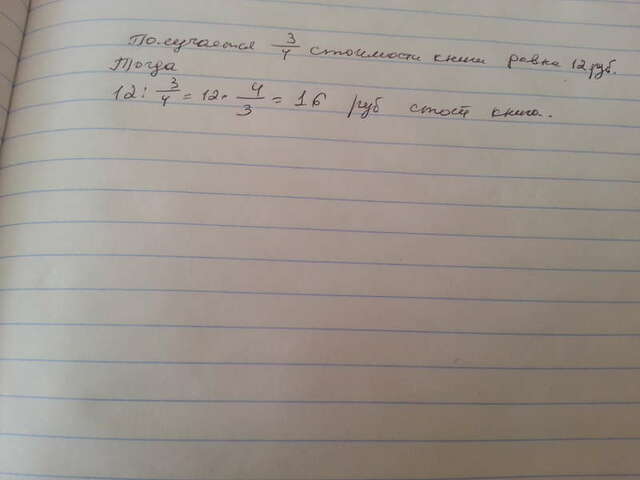 Получается 3/4 стоимости книги равна 12 руб.
Тогда
12 : 3/4 = 12 · 4/3 = 16 руб стоит книга..